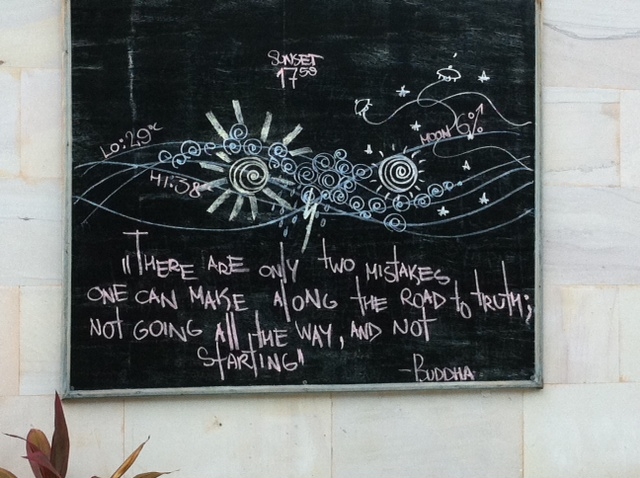 SUNSET
17 59
LO: 29°C
MOON 6%
HI: 38
"THERE ARE ONLY TWO MISTAKES
ONE CAN MAKE ALONG THE ROAD TO TRUTH;
NOT GOING All THE WAY, AND NOT
STARTING"
-BUDDHA